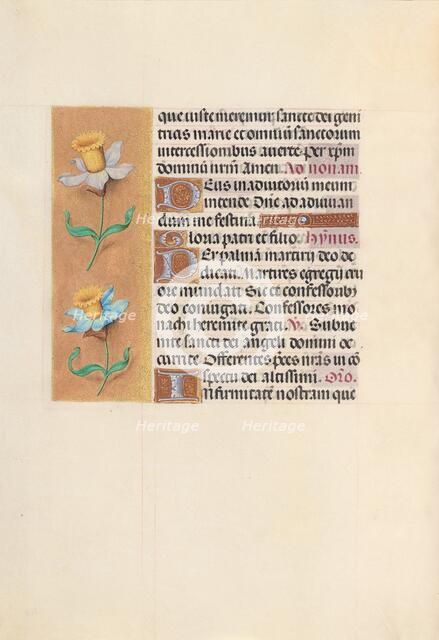 que iuste meremur sancte dei geni
tricis marie et omnium sanctorum
intercessionibus averte. per xpm
dominum nrm Amen. Ad nonam.
Deus in adiutorium meum
intende Dne ad adiuvan
dum me festina
Gloria patri et filio. hymus.
Per palmam martirii deo de
dicati Martires egregii cru
ore mundati Sic et confessores
deo coniugati Confessores mo
nachi heremite grati. V. Subve
nite sancti dei angeli domini oc
currite Offerentes preces nras in co
spectu dei altissimi. Oro.
Infirmitatem nostram que
Heritage
Heritage
Heritage
Heritage
Heritage
Heritage